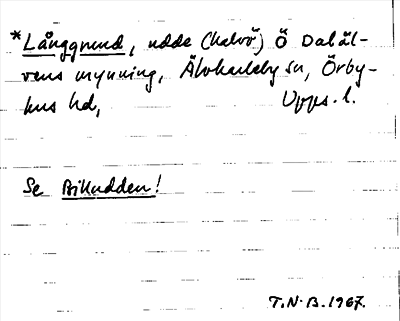 *Långgrund, udde (halvö) Ö Daläl-
vens mynning, Älvkarleby sn, Örby-
hus hd, Upps. l.
Se Billudden!
T.N.B. 1967.